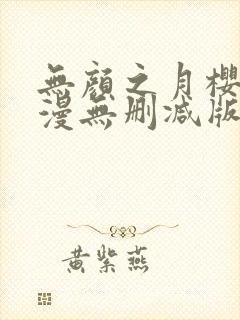 無顏之月櫻
漫無刪减版
黄紫燕